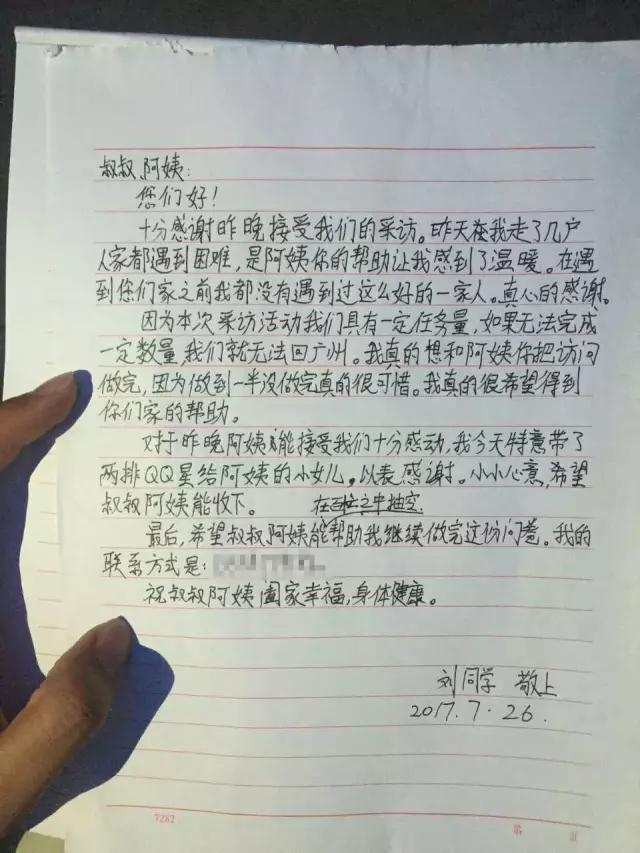 叔叔阿姨:
您们好!
十分感谢昨晚接受我们的采访。昨天在我走了几户
人家都遇到困难,是阿姨你的帮助让我感到了温暖。在遇
到您们家之前我都没有遇到过这么好的一家人。真心的感谢。
因为本次采访活动我们具有一定任务量,如果无法完成
一定数量,我们就无法回广州。我真的想和阿姨你把访问
做完,因为做到一半没做完真的很可惜。我真的很希望得到
你们家的帮助。
对于昨晚阿姨能接受我们十分感动,我今天特意带了
两排QQ星给阿姨的小女儿。以表感谢。小小心意,希望
叔叔阿姨能收下。
在百忙之中抽空
最后,希望叔叔阿姨能帮助我继续做完这份问卷。我的
联系方式是:
祝叔叔阿姨阖家幸福,身体健康。
刘同学 敬上
2017.7.26.
7282
第 页